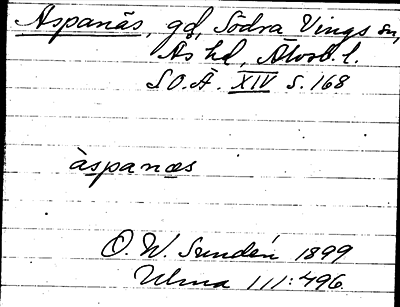 Aspanäs, gd, Södra Vings sn,
Ås hd, Älvsb. l.
S.O.Ä. XIV s. 168
àspanæs
O. W. Sundén 1899
Ulma 111:496.